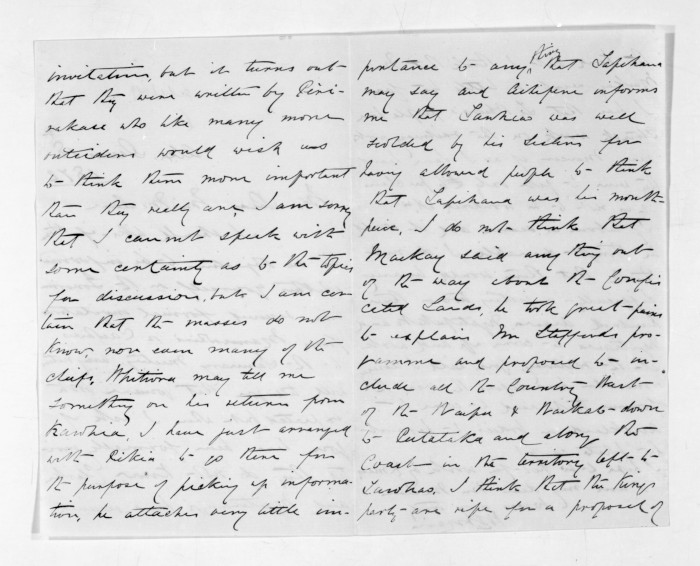 invitation, but it turns out
that they were written by
rakase who like many more
outsiders would wish us
to think them more important
than they really are, I am sorry
that I cannot speak with
some certainty as to the topics
for discussion, but I am cer-
tain that the masses do not
know, nor even many of the
chiefs, Whitiora may tell me
something on his return from
Kawhia, I have just arranged
with to go there for
the purpose of picking up informa-
tion, he attaches very little im-
portance to any thing that Tapihana
may say and informs
me that Tawhiao was well
scolded by his sisters for
having allowed people to think
that Tapihana was his mouth-
piece, I do not think that
Mackay said any thing out
of the way about the Confis
cated Lands, he took great pains
to explain pro-
gramme and proposed to in-
clude all the Country West
of the Waipa & Waikato down
to and along the
Coast in the territory left to
Tawhiao, I think that the Kings
party are ripe for a proposal of